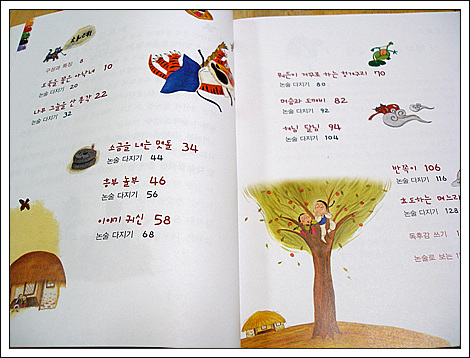 차례
구성과 특징 8
도둑을 뽑은 아낙네 10
논술 다지기 20
나무 그늘을 산 총각 22
논술 다지기 32
소금을 내는 맷돌 34
논술 다지기 44
흥부 놀부 46
논술 다지기 56
이야기 귀신 58
논술 다지기 68
뭐든지 거꾸로 하는 청개구리 70
논술 다지기 80
머슴과 도깨비 82
논술 다지기 92
해님 달님 94
논술 다지기 104
반쪽이 106
논술 다지기 116
효도하는 며느리
논술 다지기 128
독후감 쓰기
논술로 보는